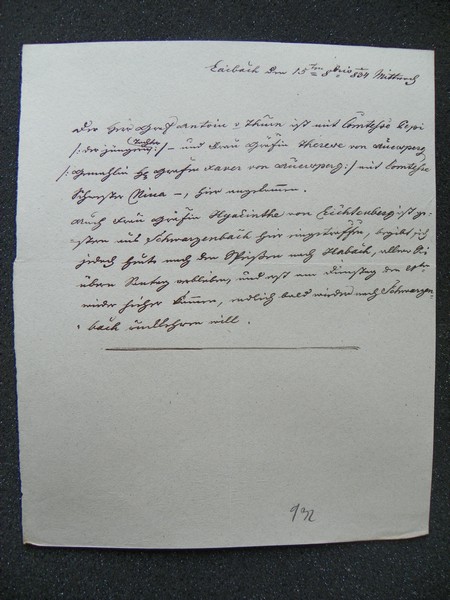 Laibach den 15ten 8bris 834 Mittwoch
Der Herr Graf Antoin v Thurn ist mit Comtesse Pepi
/: der jüngern Tochter :/ – und Frau Gräfin Therese von Auersperg
/: Gemahlin H: Grafen Xaver von Auersperg :/ mit Comtesse
Schwester Nina –, hier angekommen.
Auch Frau Gräfin Hyacinthe von Lichtenberg ist ge-
stern aus Schwarzenbach hier eingetroffen, begibt sich
jedoch heute nach der nach Habach, allwo Sie
übern verbleiben, und erst am Dienstag den
wieder hieher kommen, endlich bald wieder nach Schwarzen-
bach will.